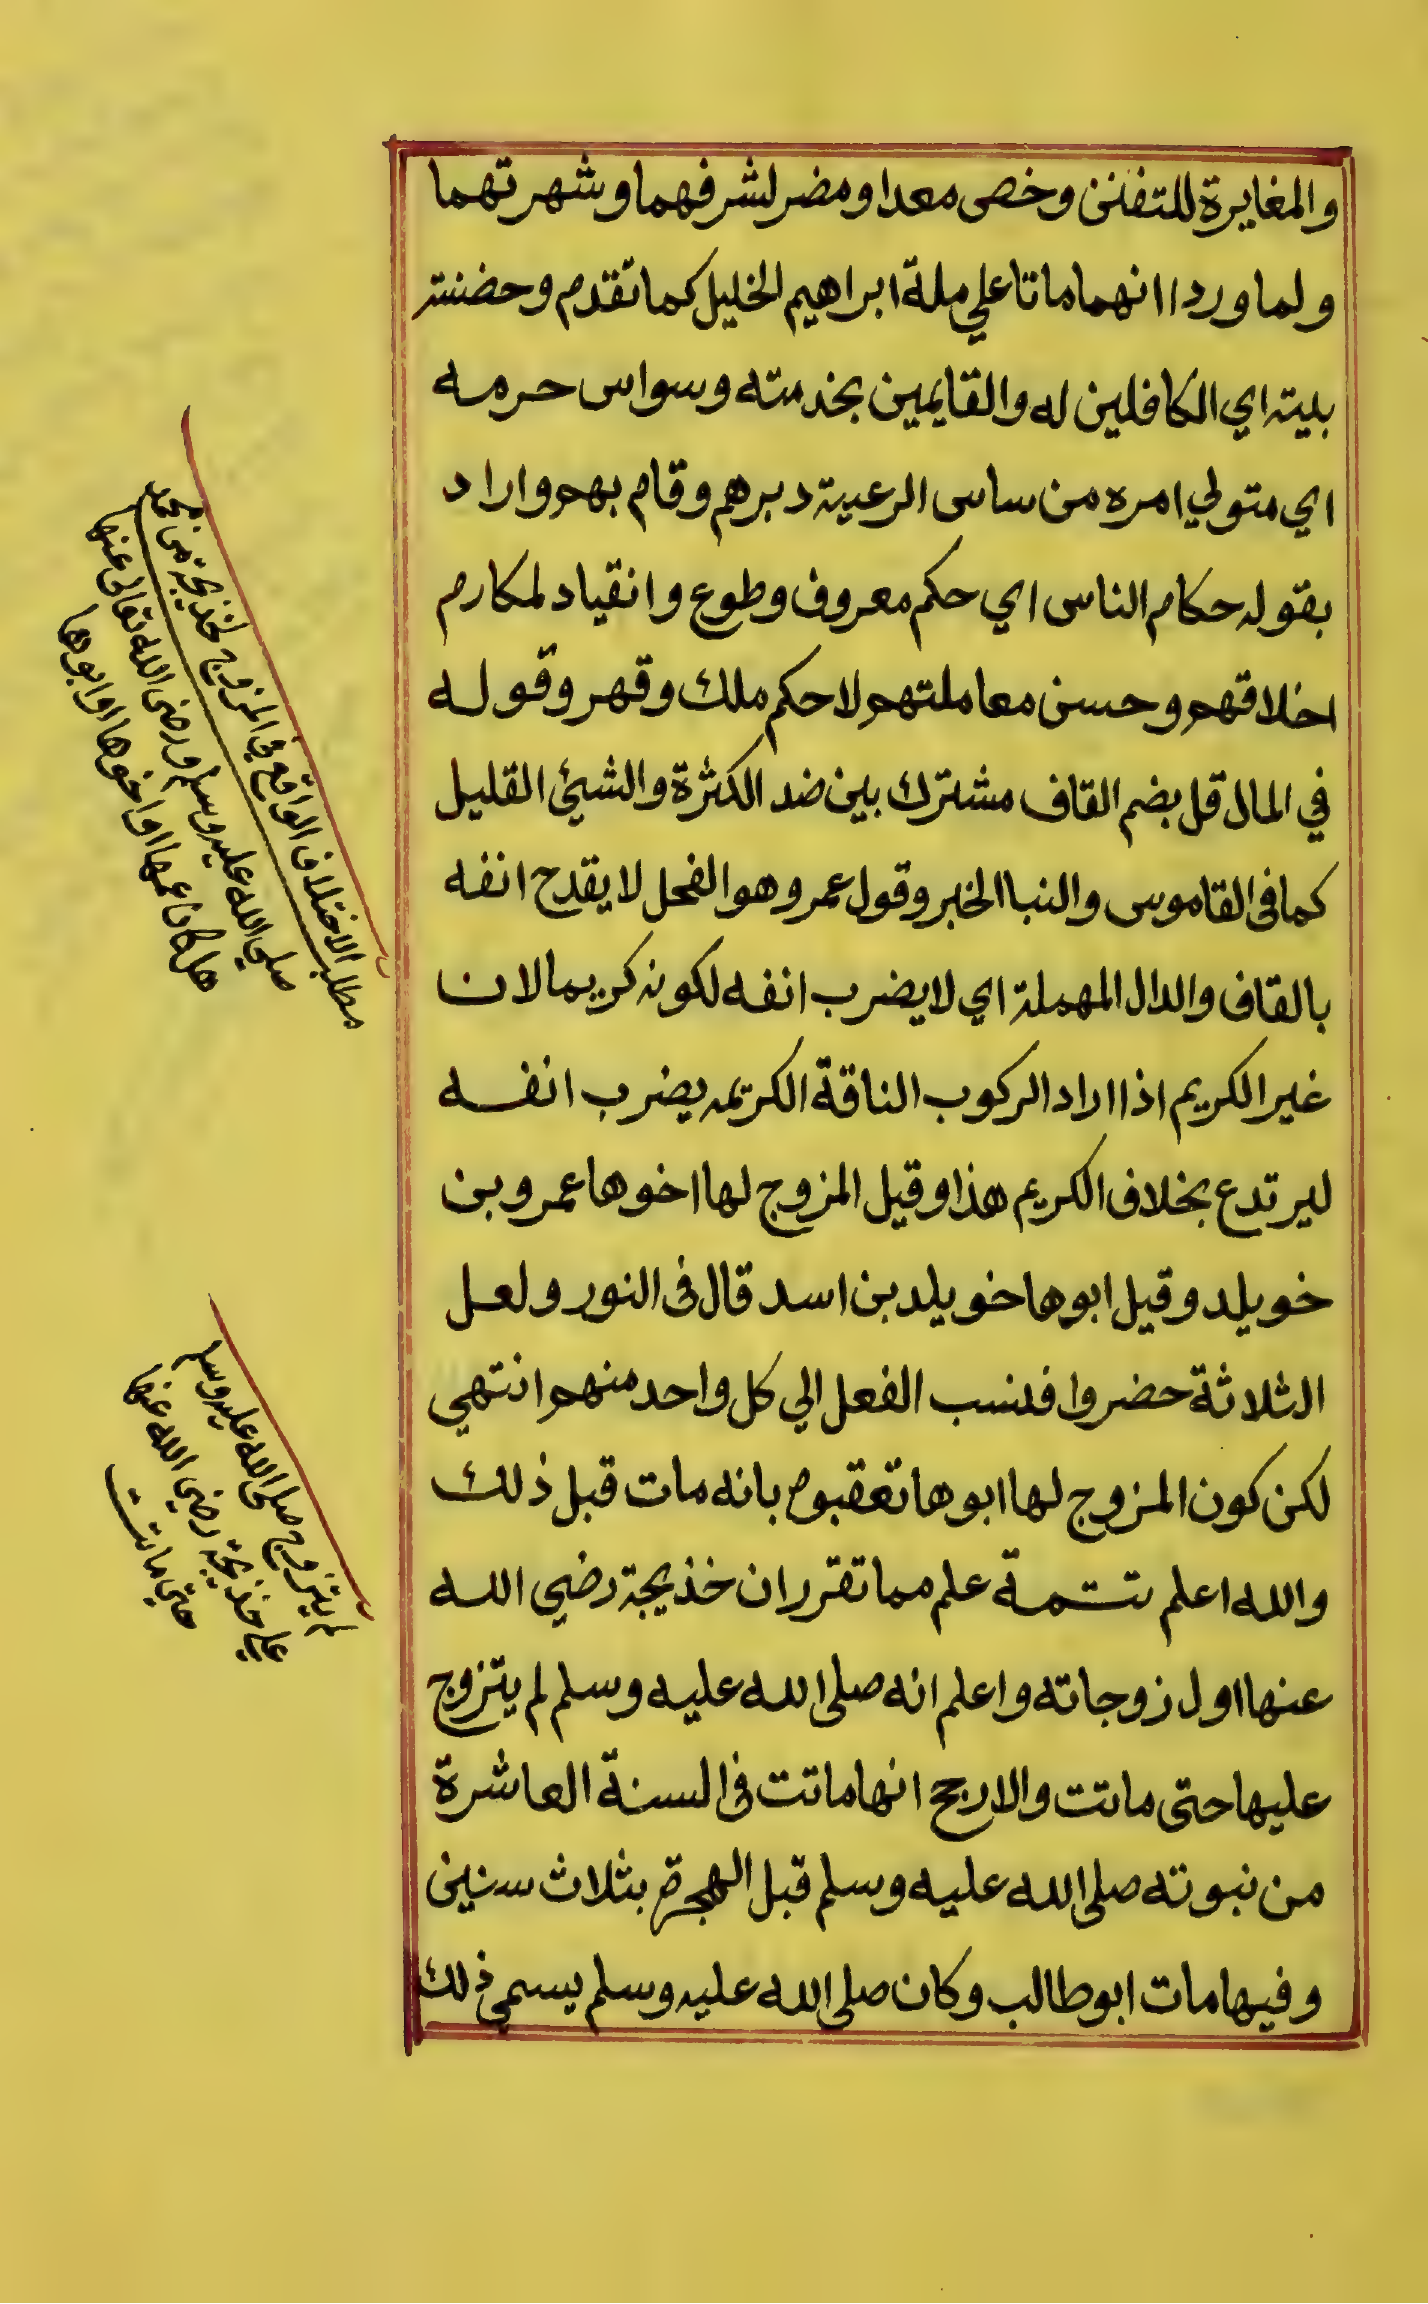 والمغايرة للتفنن وخص معدا ومضر لشرفهما وشهرتهما
ولما ورد اانهما ماتا علي ملة ابراهيم الخليل كما تقدم وحضنته
بيته اي الكافلين له والقايمين بخدمته وسواس حرمه
اي متولي امره من ساس الرعية دبرهم وقام بهم واراد
بقوله حكام الناس اي حكم معروف وطوع وانقياد لمكارم
اخلاقهم وحسن معاملتهم لا حكم ملك وقهر وقوله
في المال قل بضم القاف مشترك بين ضد الكثرة والشيئ القليل
كما فى القاموس والنبا الخبر وقول عمر وهو الفحل لا يقدح انفه
بالقاف والدال المهملة اي لا يضرب انفه لكونه كريما لان
غير الكريم اذا اراد الركوب الناقة الكريمه يضرب انفه
ليرتدع بخلاف الكريم هذا وقيل المزوج لها اخوها عمرو بن
خويلد وقيل ابوها خويلد بن اسد قال فى النور ولعل
الثلاثة حضروا فنسب الفعل الي كل واحد منهم انتهي
لكن كون المزوج لها ابوها تعقبوه بانه مات قبل ذلك
والله اعلم تتمة علم مما تقرر ان خذيجة رضي الله
عنها اول زوجاته واعلم انه صلى الله عليه وسلم لم يتزوج
عليها حتى ماتت والارجح انها ماتت فى السنة العاشرة
من نبوته صلى الله عليه وسلم قبل الهجرة بثلاث سنين
وفيها مات ابو طالب وكان صلى الله عليه وسلم يسمي ذلك
مطلب الاختلاف الواقع في المزوج لخذيجة من محمد
صلي الله عليه وسلم ورضى الله تعالى عنها
هل كان عمها او اخوها او ابوها
لم يتزوج صلى الله عليه وسلم
علي خذيجة رضي الله عنها
حتى ماتت